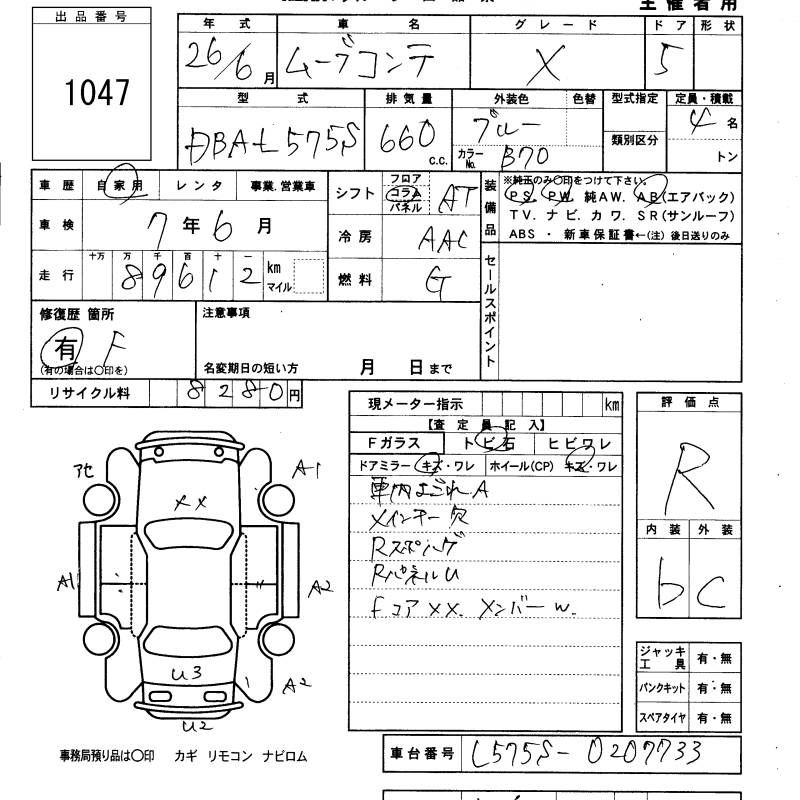 主催者用
出品番号
1047
年式 車名 グレード ドア 形状
26/6月 ムーブコンテ X 5
型式 排気量 外装色 色替 型式指定 定員・積載
DBA-L575S 660 c.c. ブルー 類別区分 4名
カラーNo. B70 トン
車歴 自家用 レンタ 事業.営業車
シフト フロア コラム パネル AT
装備品 ※純正のみ○印をつけて下さい。
PS. PW. 純AW. AB(エアバック)
TV. ナビ. カワ. SR(サンルーフ)
ABS・新車保証書←(注)後日送りのみ
車検 7年6月
冷房 AAC
走行 十万 万 千 百 十 一
89612 km マイル
燃料 G
セールスポイント
修復歴 箇所
有 F
(有の場合は○印を)
注意事項
名変期日の短い方 月 日まで
リサイクル料 8280円
現メーター指示 km
【査定員記入】
Fガラス トビ石 ヒビワレ
ドアミラー キズ・ワレ ホイール(CP) キズ・ワレ
車内よごれA
メインキー欠
Rスポイング
RパネルU
Fコアxx. メンバーw.
評価点
R
内装 外装
b C
アセ
A1
xx
A1
A2
U3
A2
U2
ジャッキ工具 有・無
パンクキット 有・無
スペアタイヤ 有・無
事務局預り品は○印 カギ リモコン ナビロム
車台番号 L575S-0207733